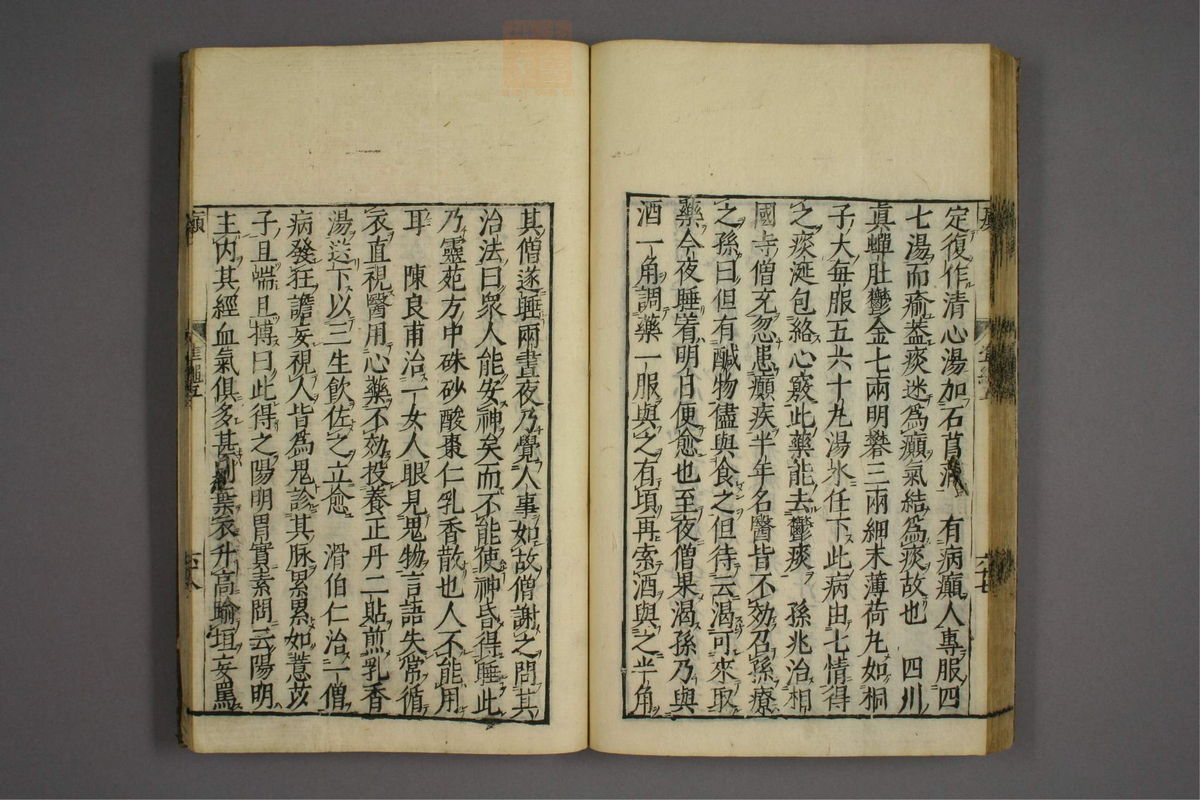 定復作清心湯加石菖蒲　有病癲人專服四
七湯而瘉蓋痰迷爲癲氣結爲痰故也　四川
眞蟬肚鬱金七兩明礬三兩細末薄荷丸如桐
子大每服五六十丸湯水任下此病由七情得
之痰涎包絡心竅此藥能去鬱痰　孫兆治相
國寺僧充忽患癲疾半年名醫皆不効召孫療
之孫曰但有鹹物儘與食之但待云渴可來取
藥今夜睡着明日便愈也至夜僧果渴孫乃與
酒一角調藥一服與之有頃再索酒與之半角
其僧遂睡兩晝夜乃覺人事如故僧謝之問其
治法曰衆人能安神矣而不能使神昏得睡此
乃靈苑方中硃砂酸棗仁乳香散也人不能用
耳　陳良甫治一女人眼見鬼物言語失常循
衣直視醫用心藥不効投養正丹二貼煎乳香
湯送下以三生飲佐之立愈　滑伯仁治一僧
病發狂譫妄視人皆爲鬼診其脉累累如薏苡
子且喘且搏曰此得之陽明胃實素問云陽明
主肉其經血氣俱多甚則棄衣升高踰垣妄罵
癲
準繩五
六八